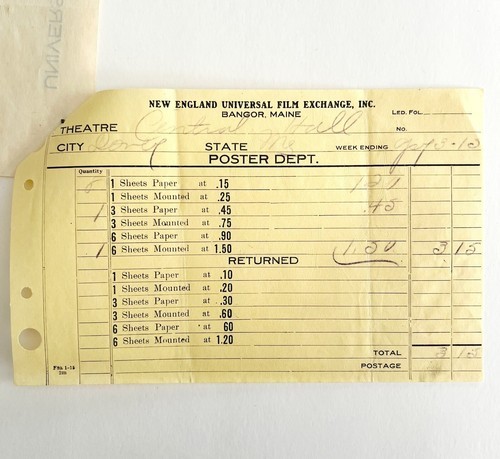 UNIVERS
NEW ENGLAND UNIVERSAL FILM EXCHANGE, INC.
BANGOR, MAINE
LED. FOL.
THEATRE Central Hall NO.
CITY Dover STATE Me WEEK ENDING
POSTER DEPT.
Quantity
1 Sheets Paper at .15
1 Sheets Mounted at .25
1 3 Sheets Paper at .45 .45
3 Sheets Mounted at .75
6 Sheets Paper at .90
1 6 Sheets Mounted at 1.50 1.50 3 15
RETURNED
1 Sheets Paper at .10
1 Sheets Mounted at .20
3 Sheets Paper at .30
3 Sheets Mounted at .60
6 Sheets Paper at 60
6 Sheets Mounted at 1.20
TOTAL 3 15
POSTAGE